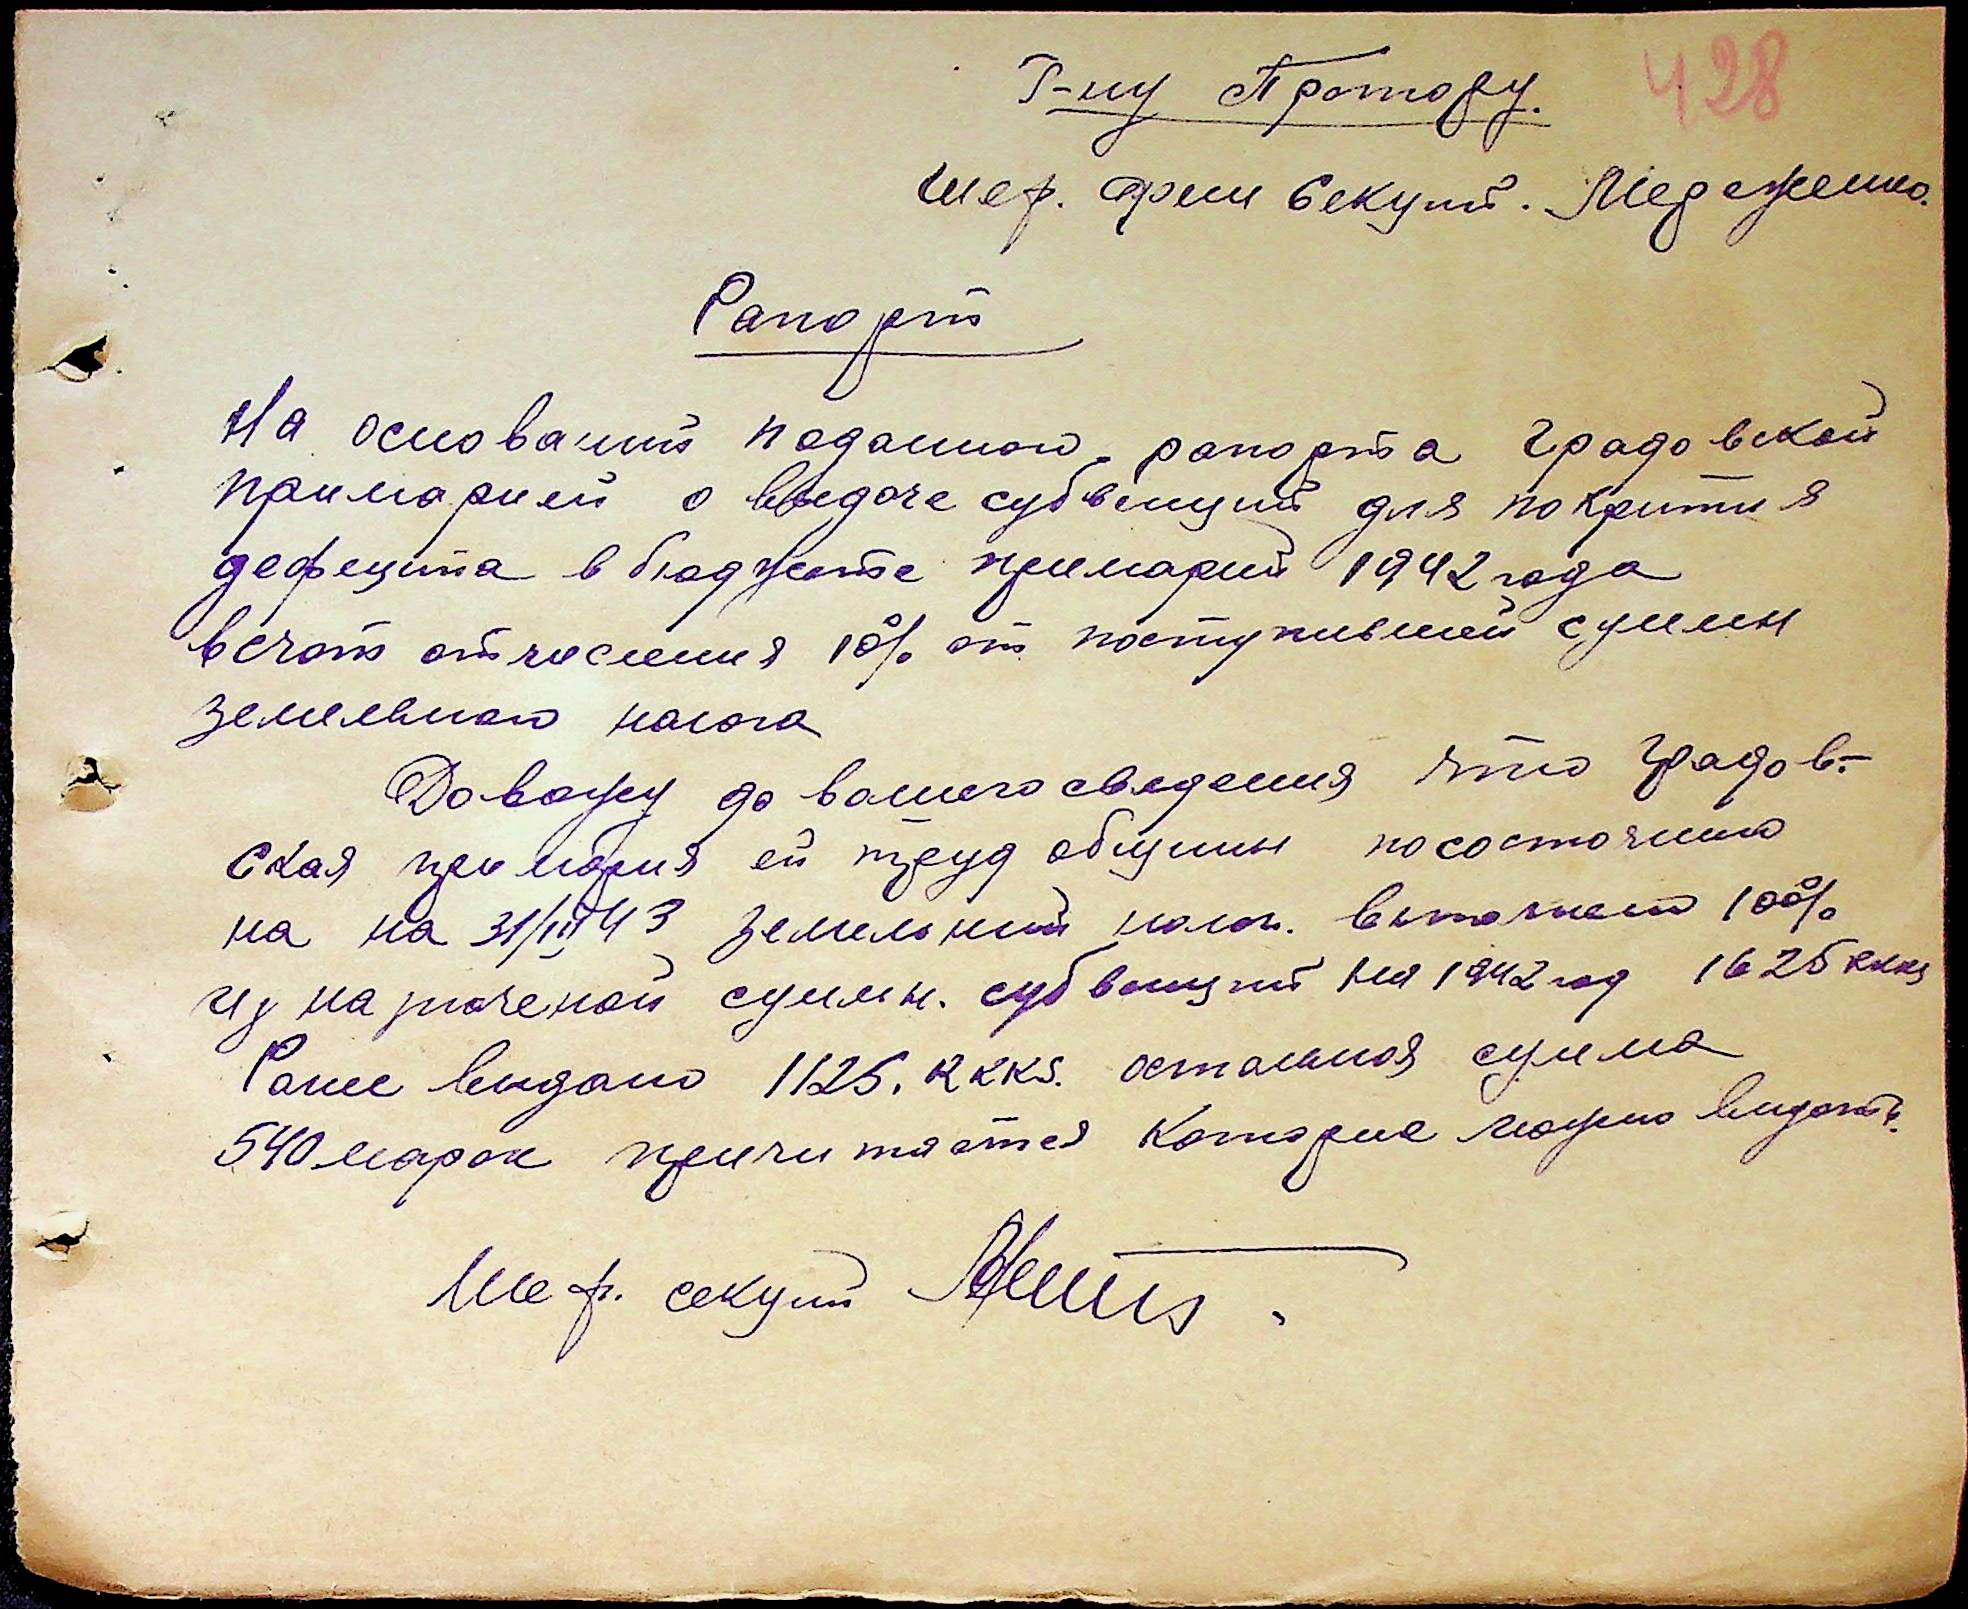 Г-ну Претору.
428
Шеф. фин Секции. Медеженко.
Рапорт
На оснований поданного рапорта Градовской
примарией о выдаче субвенций для покрития
дефецита в бюджете примарий 1942 года
всчет отчисления 10% от поступившей суммы
земельного налога
Довожу до вашего сведения что Градов-
ская примария ей труд общины посостоянию
на на 31/III 43 земельний налог. 100%
Из назначеной суммы. субвенций на 1942 год 1625 RKKS
Ранее выдано 1125. RKKS. остальная сумма
540 марок причитается которие можно выдать.
Шеф. секций